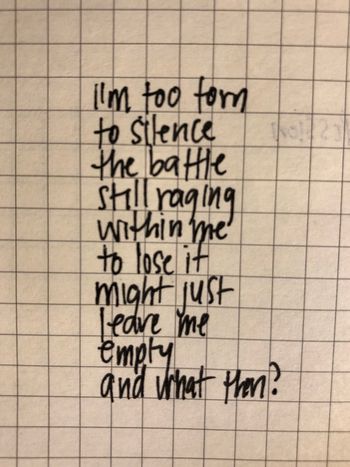 I'm too torn
to silence
the battle
still raging
within me
to lose it
might just
leave me
empty
and what then?